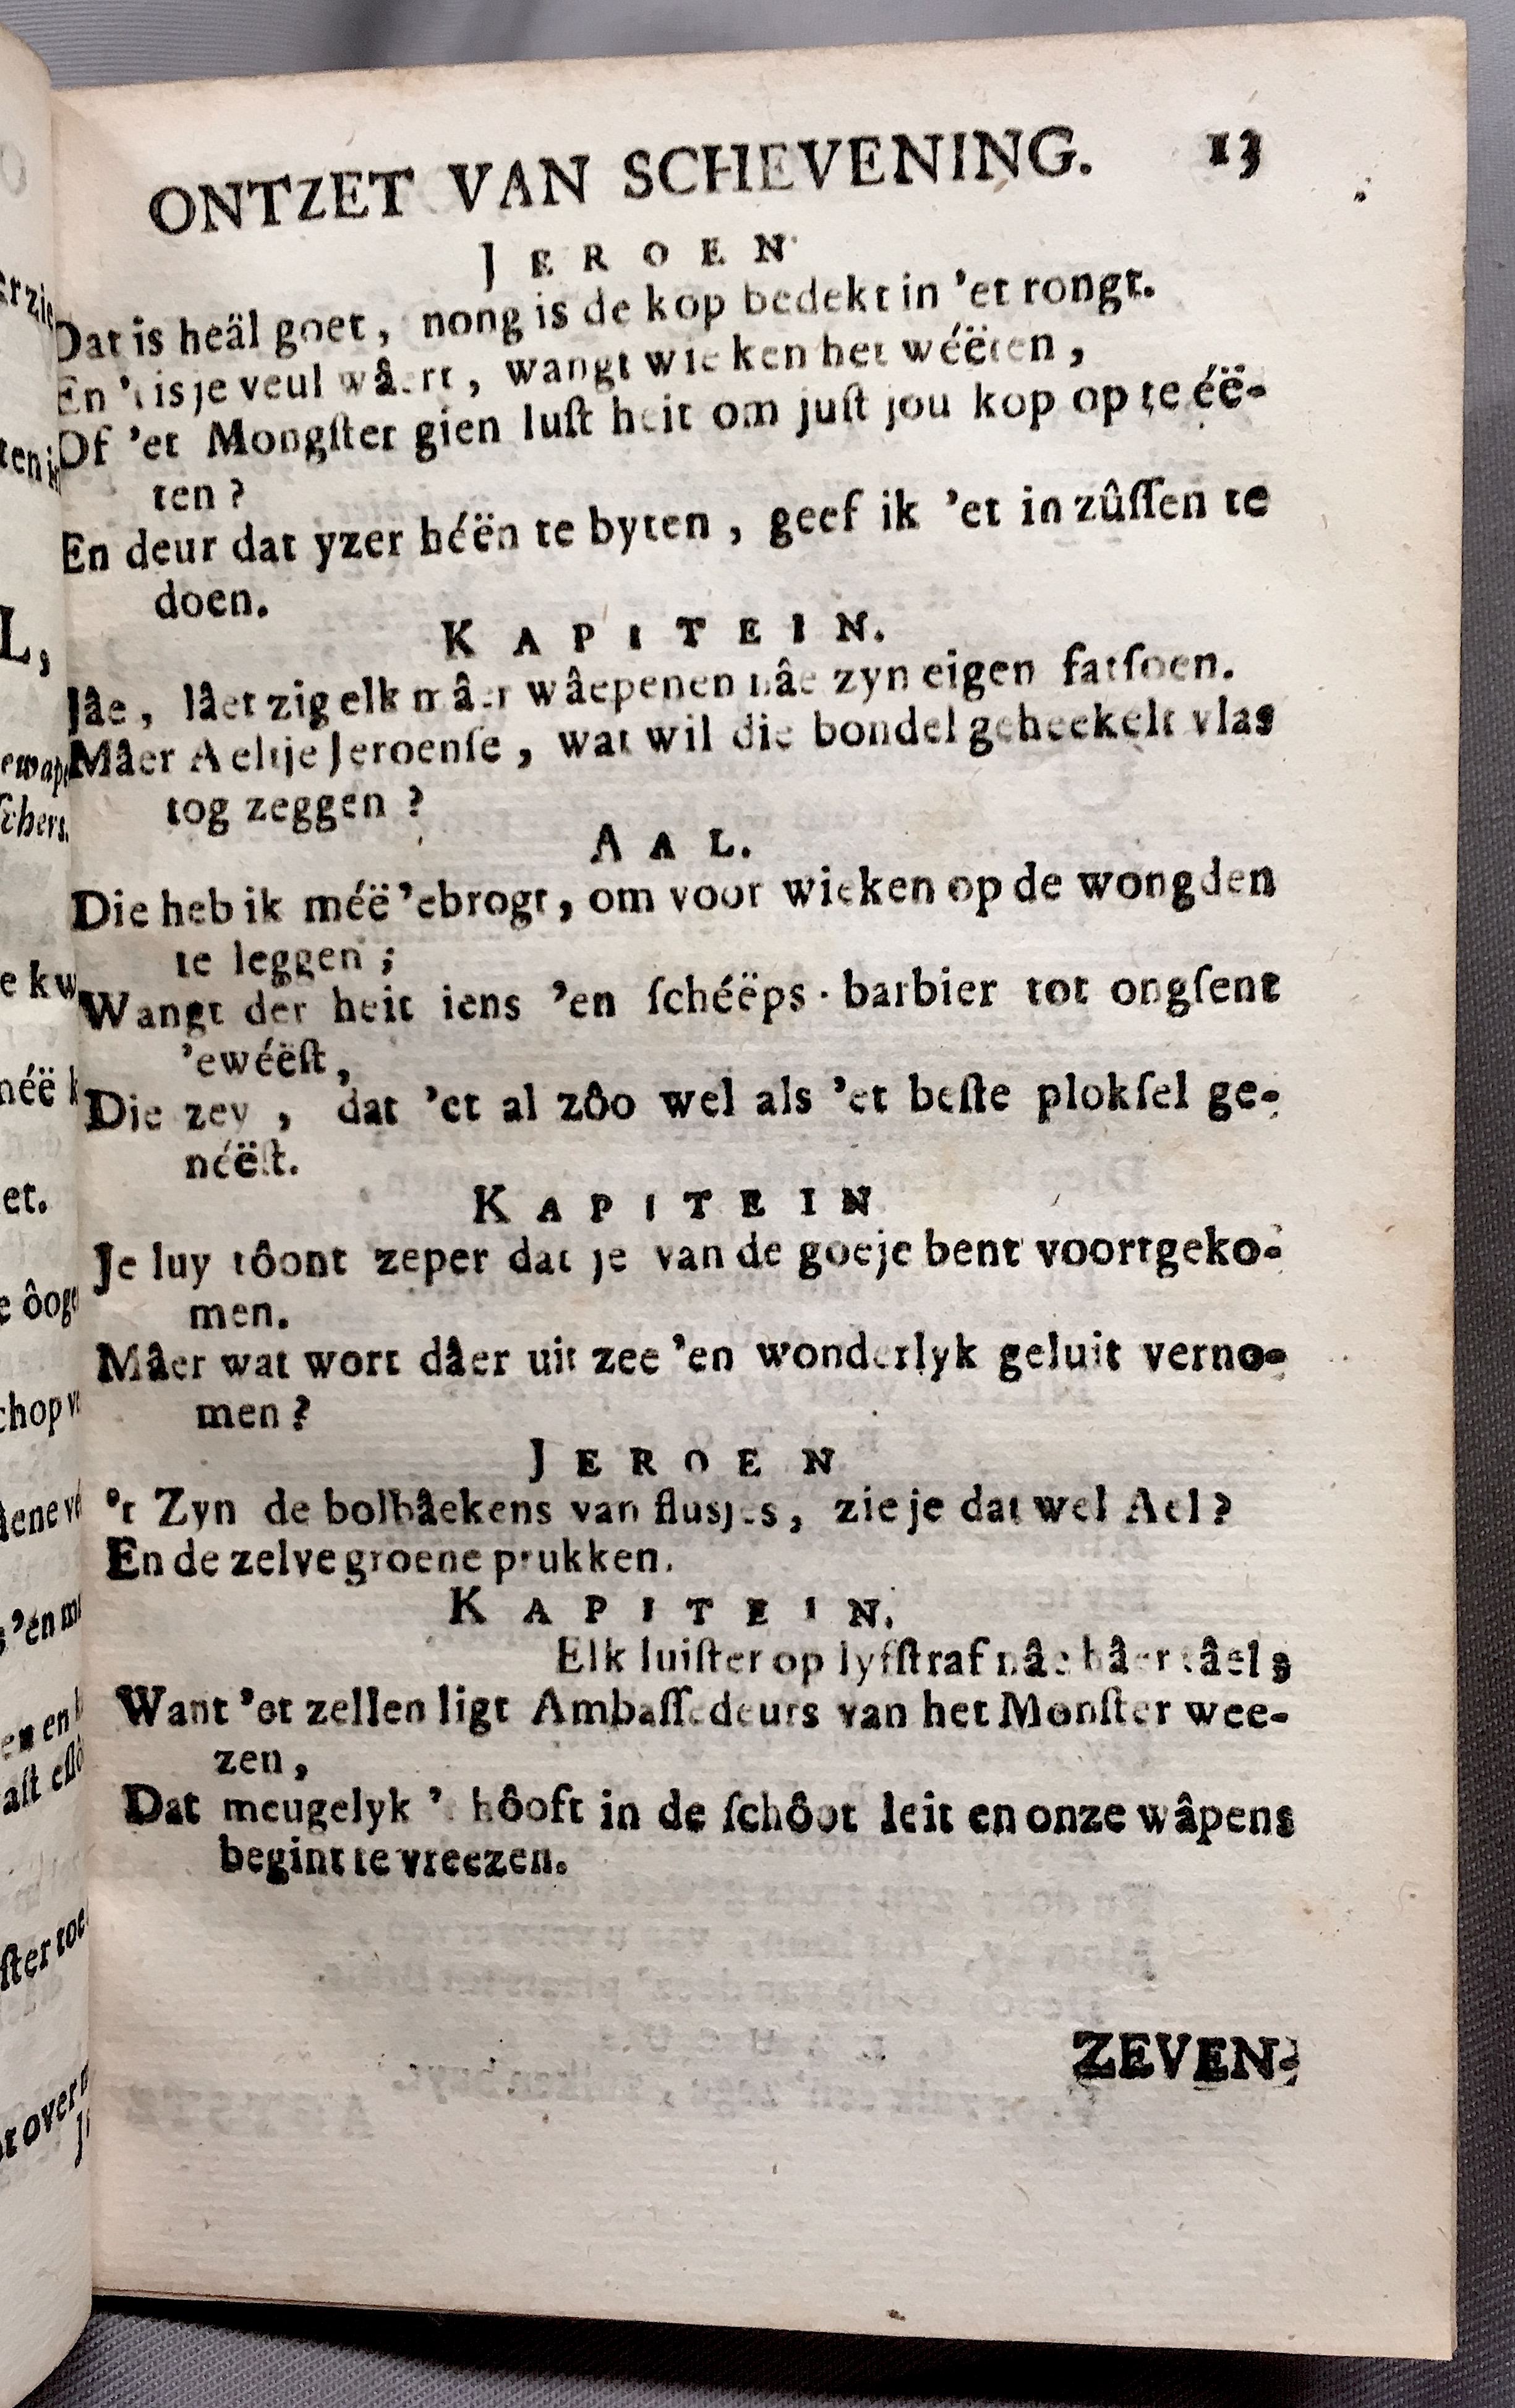 ONTZET VAN SCHEVENING. 13
JEROEN
Dat is heäl goet, nong is de kop bedekt in 'et rongt.
En 't is je veul wâert, wangt wie ken het wéëten,
Of 'et Mongſter gien luſt heit om juſt jou kop op te éë-
ten?
En deur dat yzer héën te byten, geef ik 'et in zûſſen te
doen.
KAPITEIN.
Jâe, lâet zig elk mâer wâepenen nâe zyn eigen fatſoen.
Mâer Aeltje Jeroenſe, wat wil die bondel geheekelt vlas
tog zeggen?
AAL.
Die heb ik méë 'ebrogt, om voor wieken op de wongden
te leggen;
Wangt der heit iens 'en ſchéëps-barbier tot ongſent
'ewéëſt,
Die zey, dat 'et al zôo wel als 'et beſte plokſel ge-
néëſt.
KAPITEIN
Je luy tôont zeper dat je van de goeje bent voortgeko-
men.
Mâer wat wort dâer uit zee 'en wonderlyk geluit verno-
men?
JEROEN
't Zyn de bolbâekens van fluſjes, zie je dat wel Ael?
En de zelve groene prukken.
KAPITEIN.
Elk luiſter op lyfſtraf nâe hâer tâel;
Want 'et zellen ligt Ambaſſedeurs van het Monſter wee-
zen,
Dat meugelyk 't hôoft in de ſchôot leit en onze wâpens
begint te vreezen.
ZEVEN-